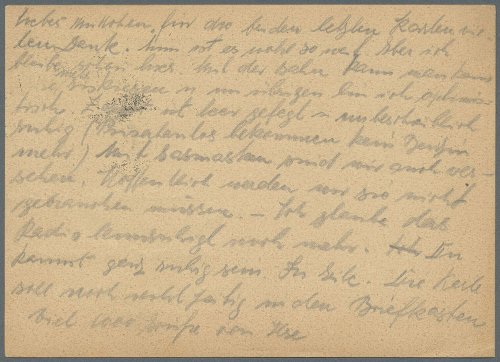 liebes Mutkchen, für die beiden letzten Karten vie
len Dank. Nun ist es wohl so weit. Aber ich
bleibe schon hier. Mit der Bahn kann man kaum
mehr riskieren u. im übrigen bin ich optimi-
stisch. ist leer gefegt u. unbeschreiblich
ruhig (Privatautos bekommen kein Benzin
mehr). Mit Gasmasken sind wir auch ver-
sehen. Hoffentlich werden wir sie nicht
gebrauchen müssen. – Ich glaube das
Radio beunruhigt noch mehr. Du
kannst ganz ruhig sein. In Eile. Die Karte
soll noch rechtzeitig in den Briefkasten
Viel 1000 Grüße von Ilse